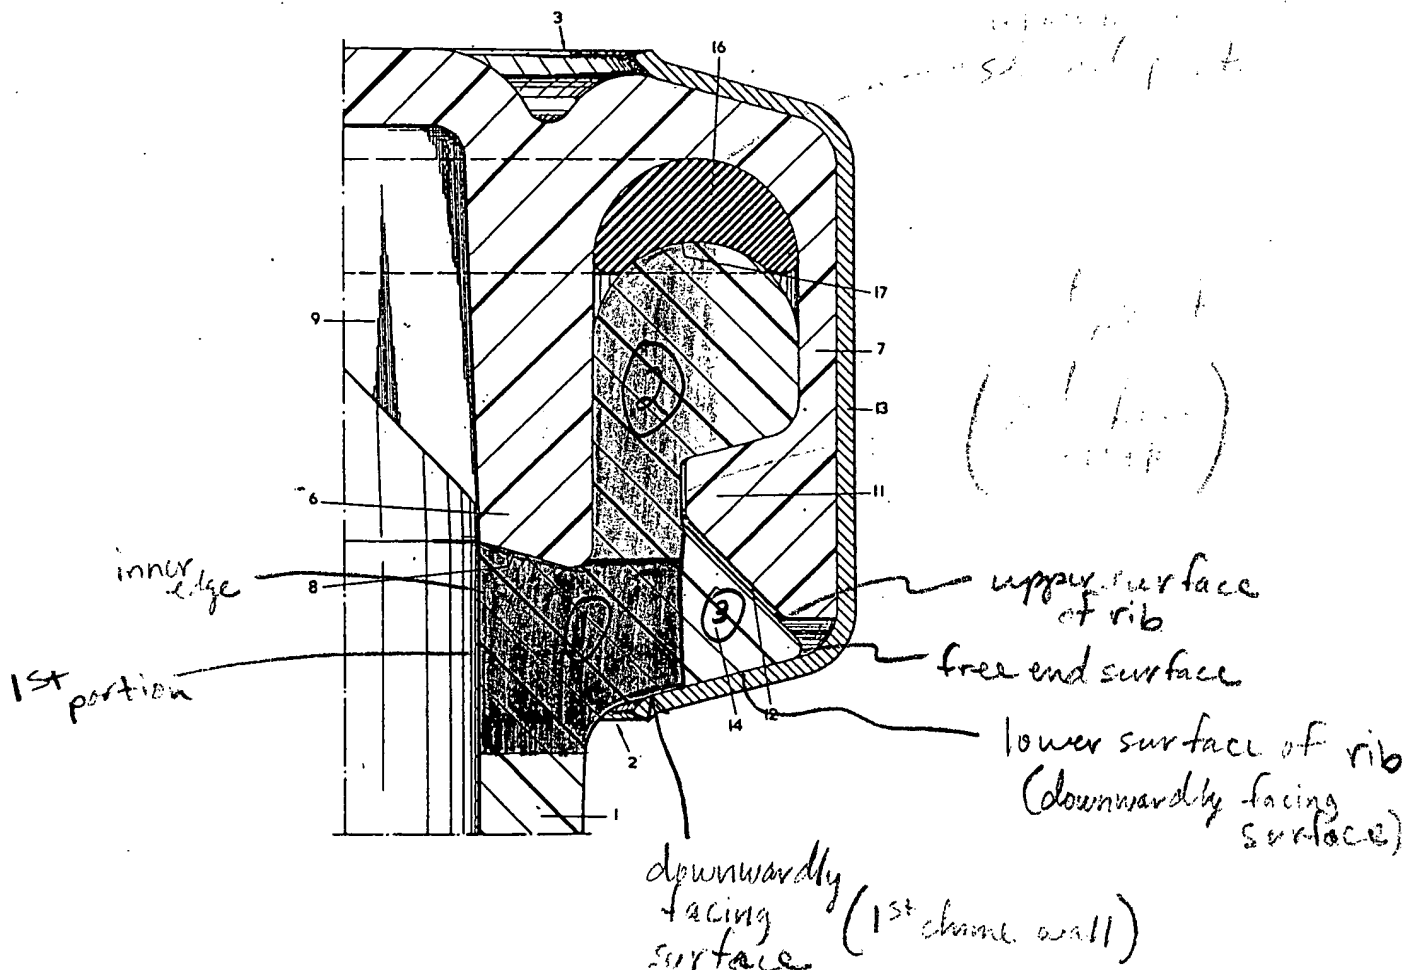 3
16
17
9
7
13
6
11
inner
edge
8
1st
portion
upper surface
of rib
3
free end surface
14
12
2
lower surface of rib
(downwardly facing
surface)
1
downwardly
facing
surface
(1st chime wall)